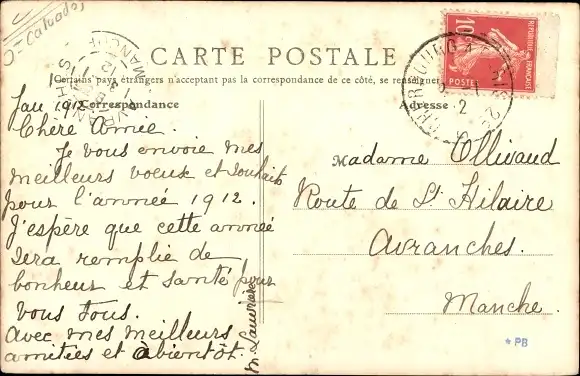 Calvados
CARTE POSTALE
Certains pays étrangers n'acceptant pas la correspondance de ce côté, se renseigner
Correspondance
Adresse
Jan 1912
Chère Amie.
Je vous envoie mes
meilleurs voeux et souhaits
pour l'année 1912.
J'espère que cette année
sera remplie de
bonheur et santé pour
vous tous.
Avec mes meilleurs
amitiées et àbientôt.
Madame Ollivaud
Route de St Hilaire
Avranches.
Manche.
10
POSTES
REPUBLIQUE FRANÇAISE
CHERBOURG
AVRANCHES
MANCHE
*PB